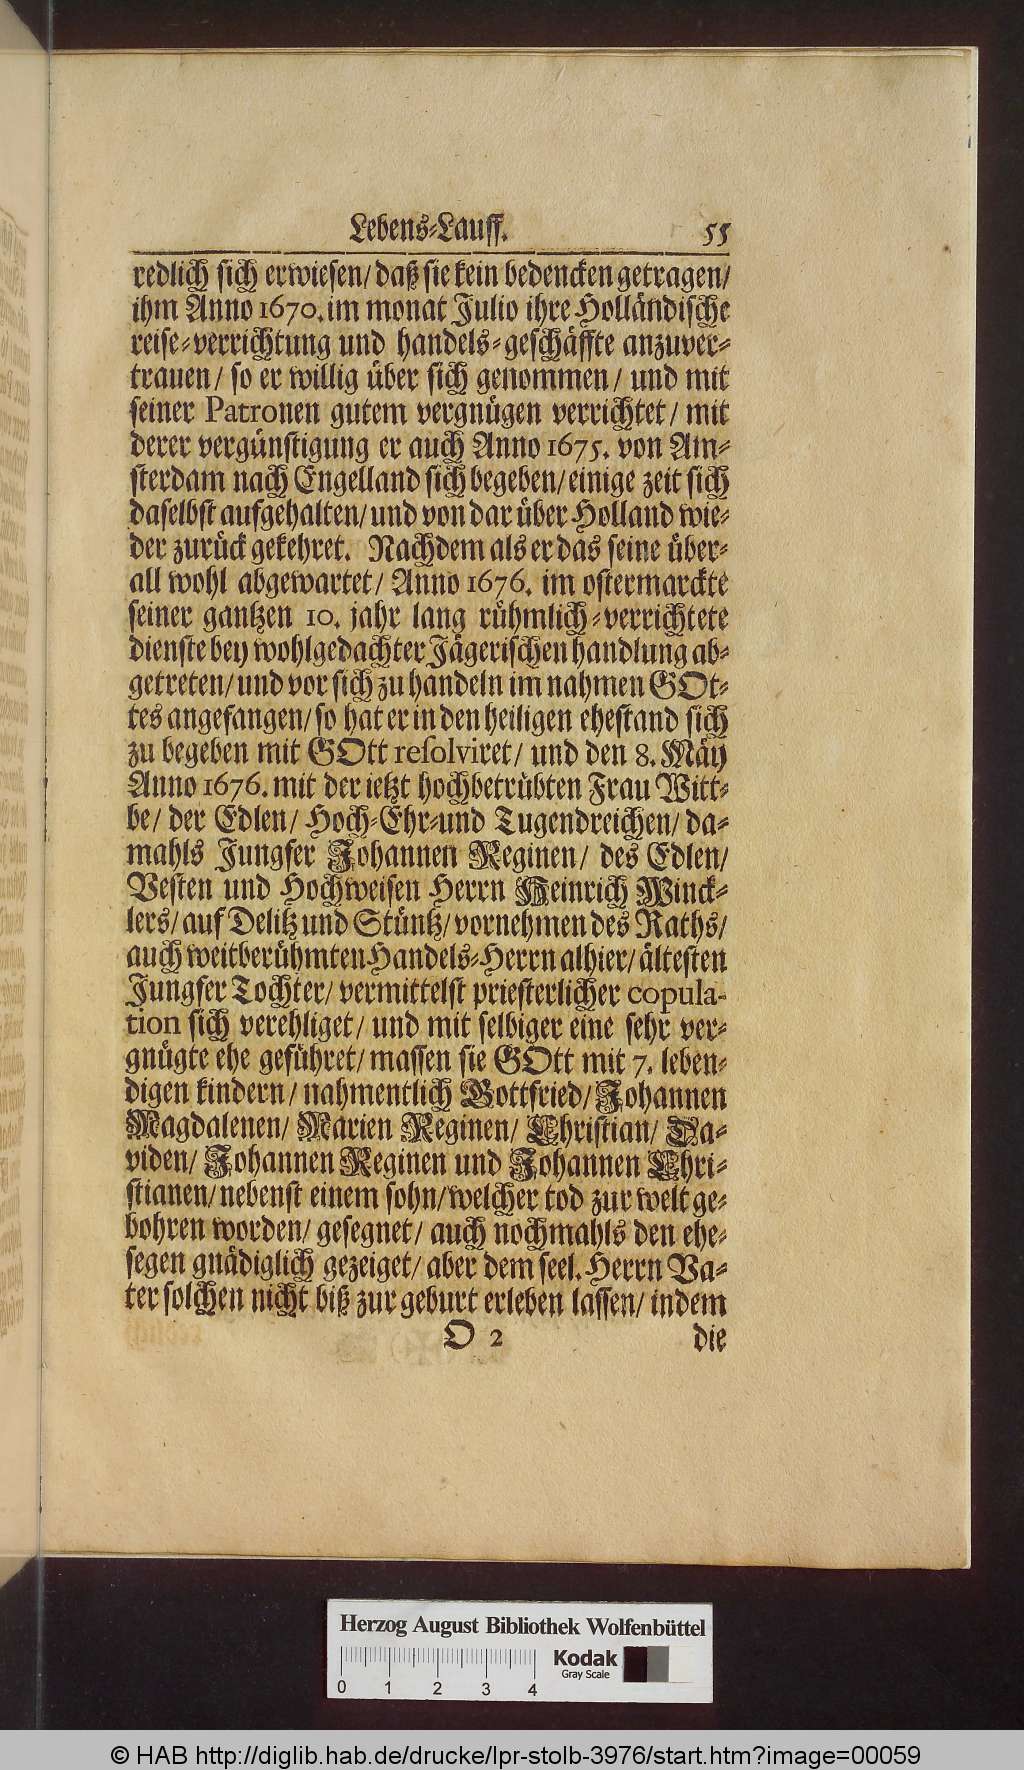 Lebens-Lauff. 55
redlich sich erwiesen/ daß sie kein bedencken getragen/
ihm Anno 1670. im monat Julio ihre Holländische
reise-verrichtung und handels-geschäffte anzuver-
trauen/ so er willig über sich genommen/ und mit
seiner Patronen gutem vergnügen verrichtet/ mit
derer vergünstigung er auch Anno 1675. von Am-
sterdam nach Engelland sich begeben/ einige zeit sich
daselbst aufgehalten/ und von dar über Holland wie-
der zurück gekehret. Nachdem als er das seine über-
all wohl abgewartet/ Anno 1676. im ostermarckte
seiner gantzen 10. jahr lang rühmlich-verrichtete
dienste bey wohlgedachter Jägerischen handlung ab-
getreten/ und vor sich zu handeln im nahmen GOt-
tes angefangen/ so hat er in den heiligen ehestand sich
zu begeben mit GOtt resolviret/ und den 8. Mäy
Anno 1676. mit der ietzt hochbetrübten Frau Witt-
be/ der Edlen/ Hoch-Ehr-und Tugendreichen/ da-
mahls Jungfer Johannen Reginen/ des Edlen/
Vesten und Hochweisen Herrn Heinrich Winck-
lers/ auf Delitz und Stüntz/ vornehmen des Raths/
auch weitberühmten Handels-Herrn alhier/ ältesten
Jungfer Tochter/ vermittelst priesterlicher copula-
tion sich verehliget/ und mit selbiger eine sehr ver-
gnügte ehe geführet/ massen sie GOtt mit 7. leben-
digen kindern/ nahmentlich Gottfried/ Johannen
Magdalenen/ Marien Reginen/ Christian/ Da-
viden/ Johannen Reginen und Johannen Chri-
stianen/ nebenst einem sohn/ welcher tod zur welt ge-
bohren worden/ gesegnet/ auch nochmahls den ehe-
segen gnädiglich gezeiget/ aber dem seel. Herrn Va-
ter solchen nicht biß zur geburt erleben lassen/ indem
O 2 die
Herzog August Bibliothek Wolfenbüttel
Kodak
Gray Scale
0 1 2 3 4
© HAB http://diglib.hab.de/drucke/lpr-stolb-3976/start.htm?image=00059